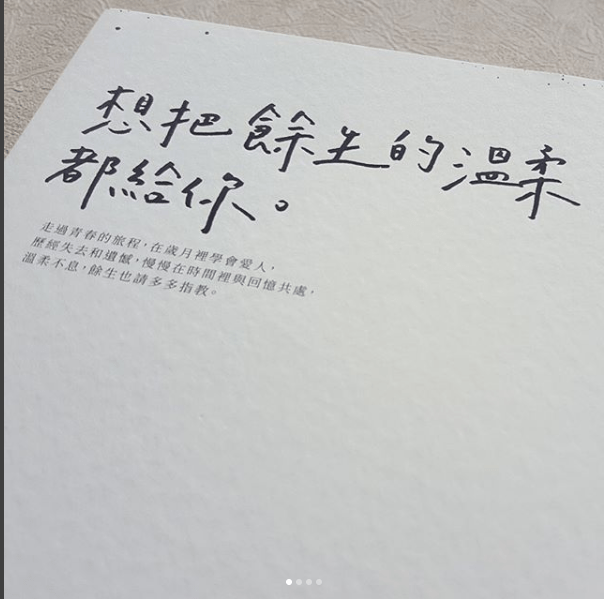 想把餘生的溫柔
都給你。
走過青春的旅程，在歲月裡學會愛人，
歷經失去和遺憾，慢慢在時間裡與回憶共處，
溫柔不息，餘生也請多多指教。